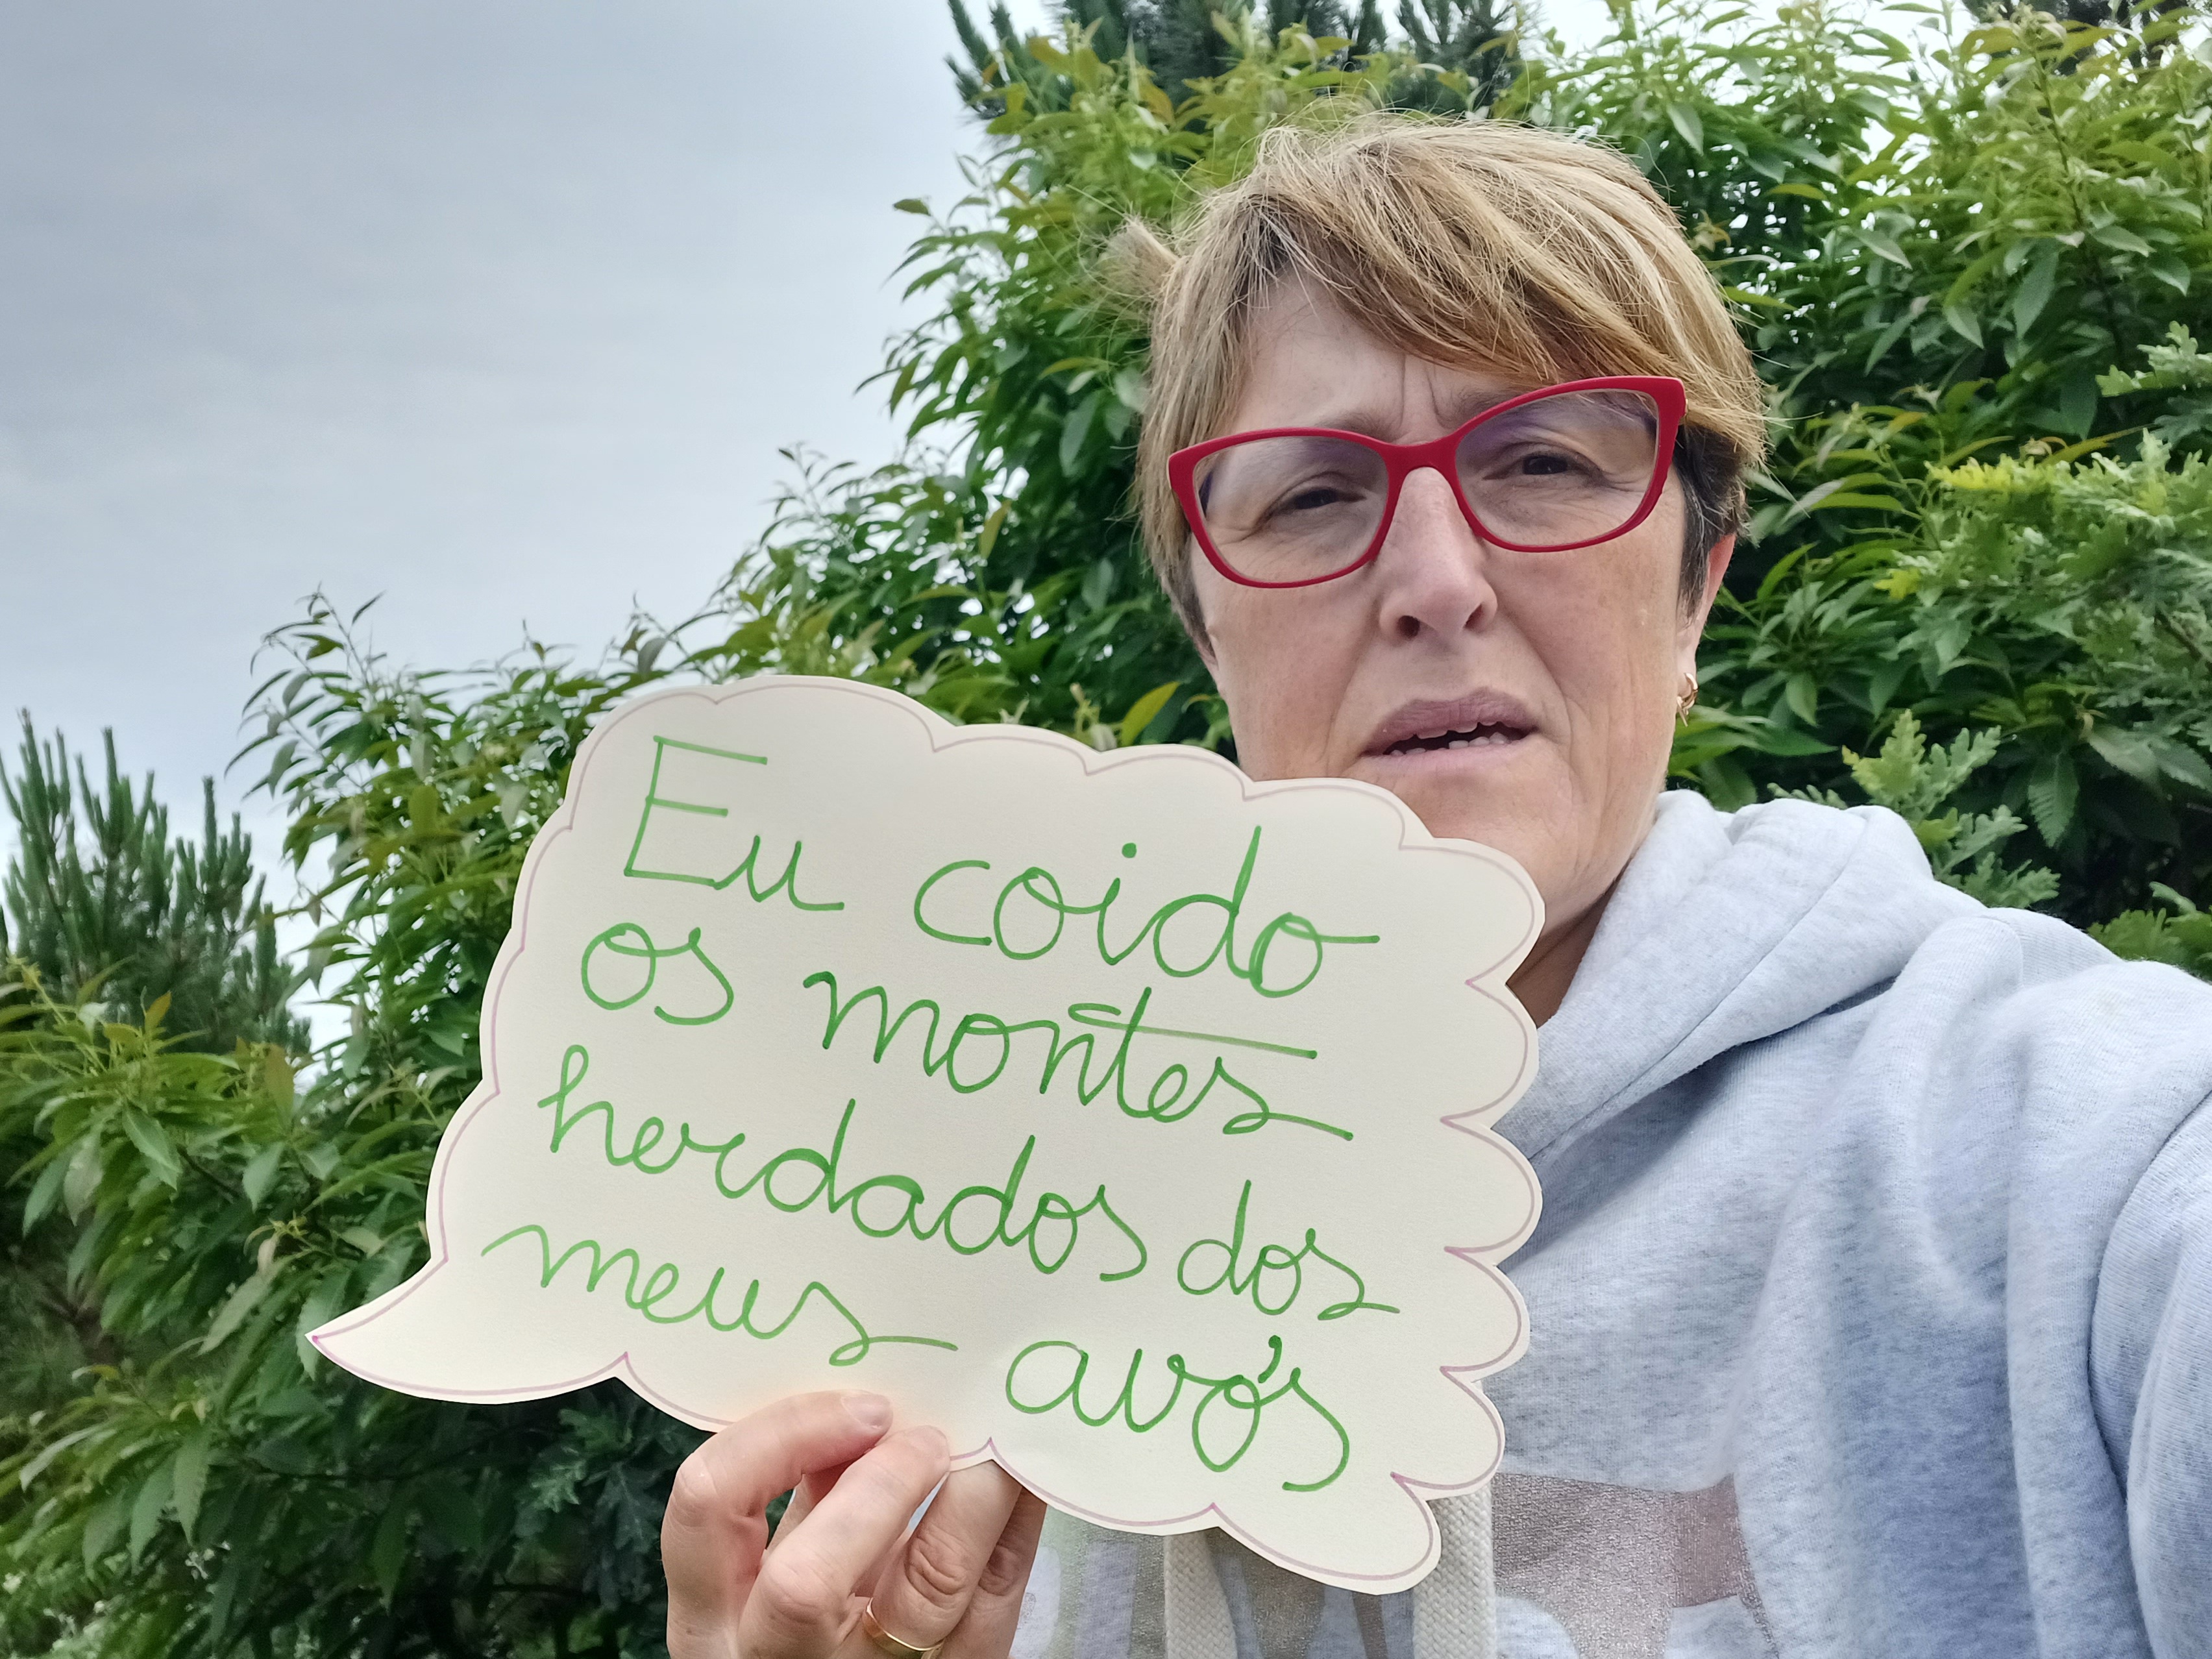 Eu coido
os montes
herdados dos
meus avós